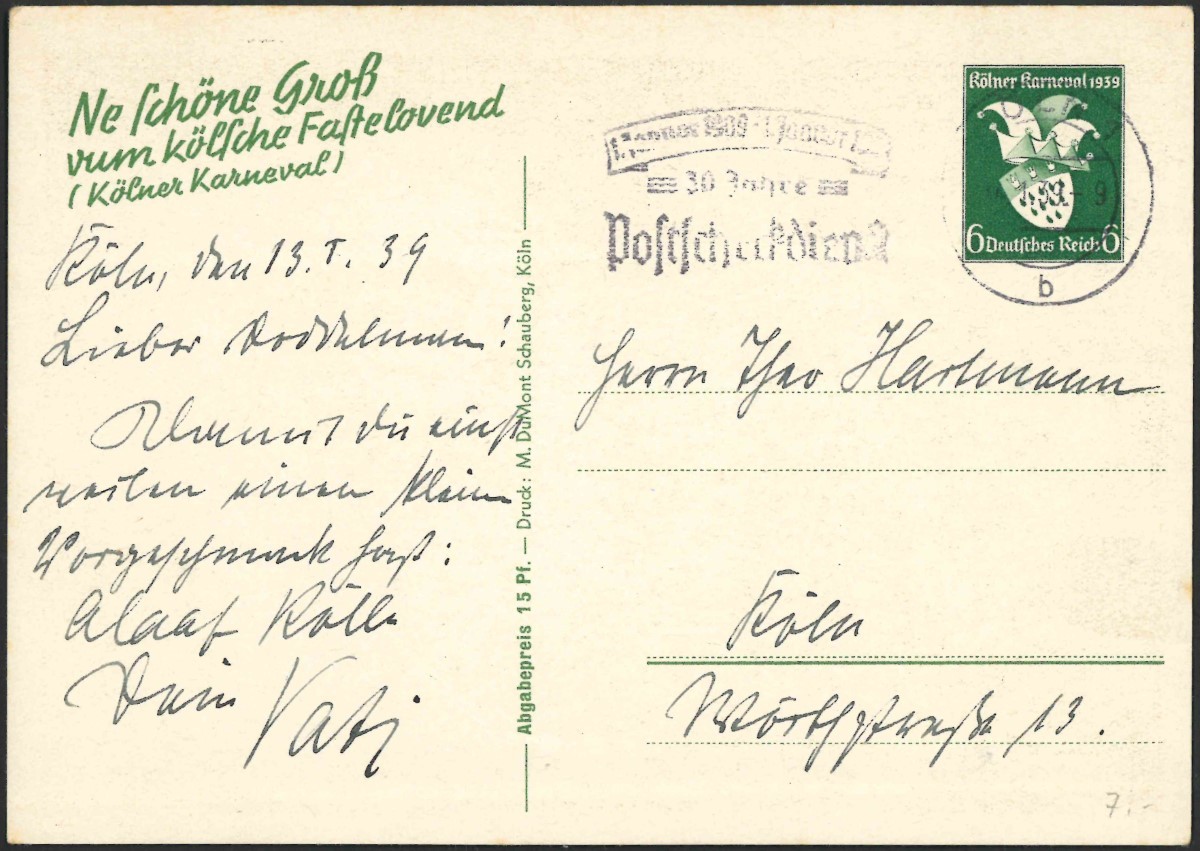 Ne schöne Groß
vum kölsche Fastelovend
(Kölner Karneval)
Köln, den 13.I.39
Lieber
Damit du einst
weilen einen klein
Vorgeschmack hast:
Alaaf Kölle
Dein Vati
Abgabepreis 15 Pf. — Druck: M. DuMont Schauberg, Köln
1. Januar 1909 - 1. Januar
30 Jahre
Postscheckdienst
Kölner Karneval 1939
6 Deutsches Reich 6
39 - 9
b
Herrn Theo Hartmann
Köln
Wörthstraße 13.
7.-